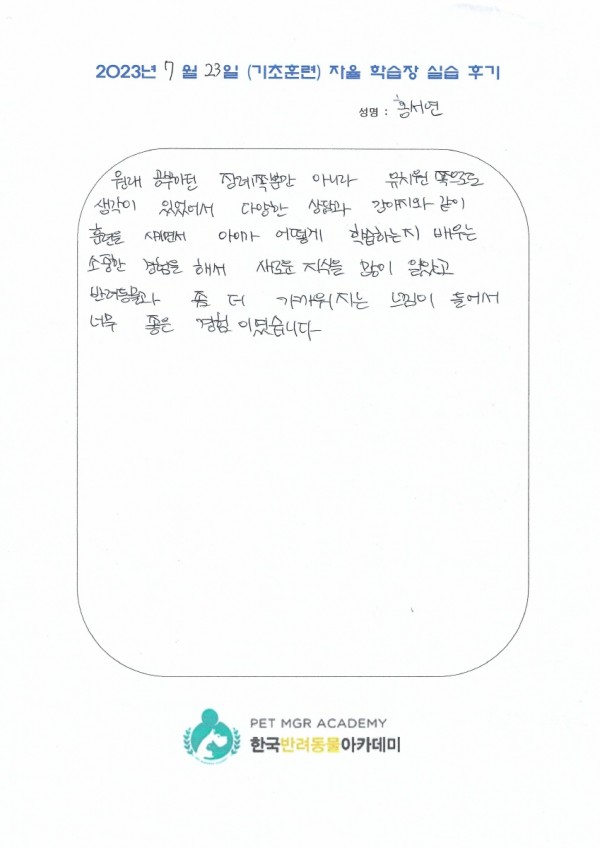 2023년 7월 23일 (기초훈련) 자율 학습장 실습 후기
성명 : 홍서연
원래 공부하던 장례쪽뿐만 아니라 유치원 쪽으로도
생각이 있었어서 다양한 상황과 강아지와 같이
훈련을 시키면서 아이가 어떻게 학습하는지 배우는
소중한 경험을 해서 새로운 지식을 많이 알았고
반려동물과 좀 더 가까워지는 느낌이 들어서
너무 좋은 경험이였습니다
PET MGR ACADEMY
한국반려동물아카데미